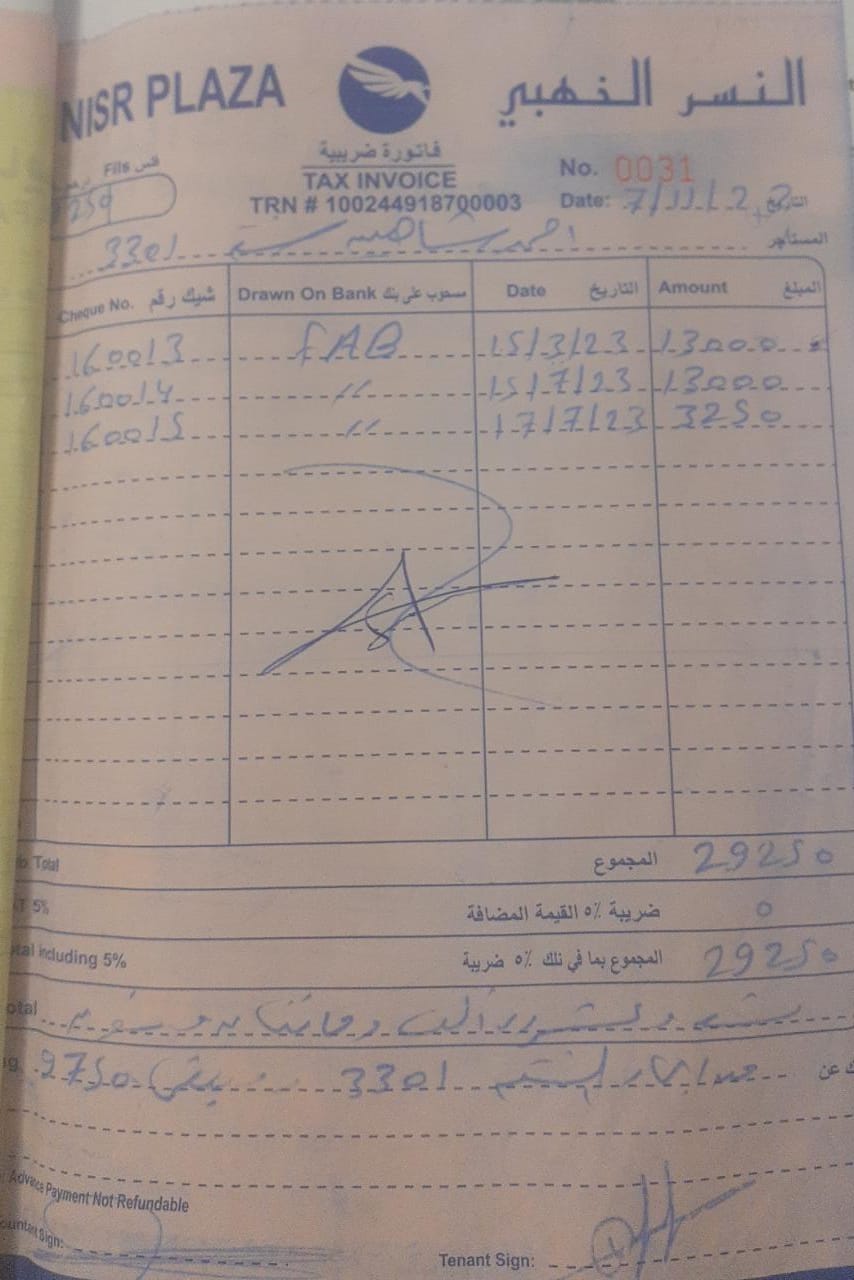 NISR PLAZA النسر الذهبي
فاتورة ضريبية
TAX INVOICE
TRN # 100244918700003
Fils فلس درهم
No. 0031
Date: 7/11/2 التاريخ
المستأجر احمد شاهين 3301
Cheque No. شيك رقم Drawn On Bank مسحوب على بنك Date التاريخ Amount المبلغ
160013 FAB 15/3/23 13000
160014 〃 15/7/23 13000
160015 〃 17/7/23 3250
Total المجموع 29250
5% ضريبة ٥٪ القيمة المضافة 0
including 5% المجموع بما في ذلك ٥٪ ضريبة 29250
الف
عن 3301 9750
Advance Payment Not Refundable
Sign:
Tenant Sign: